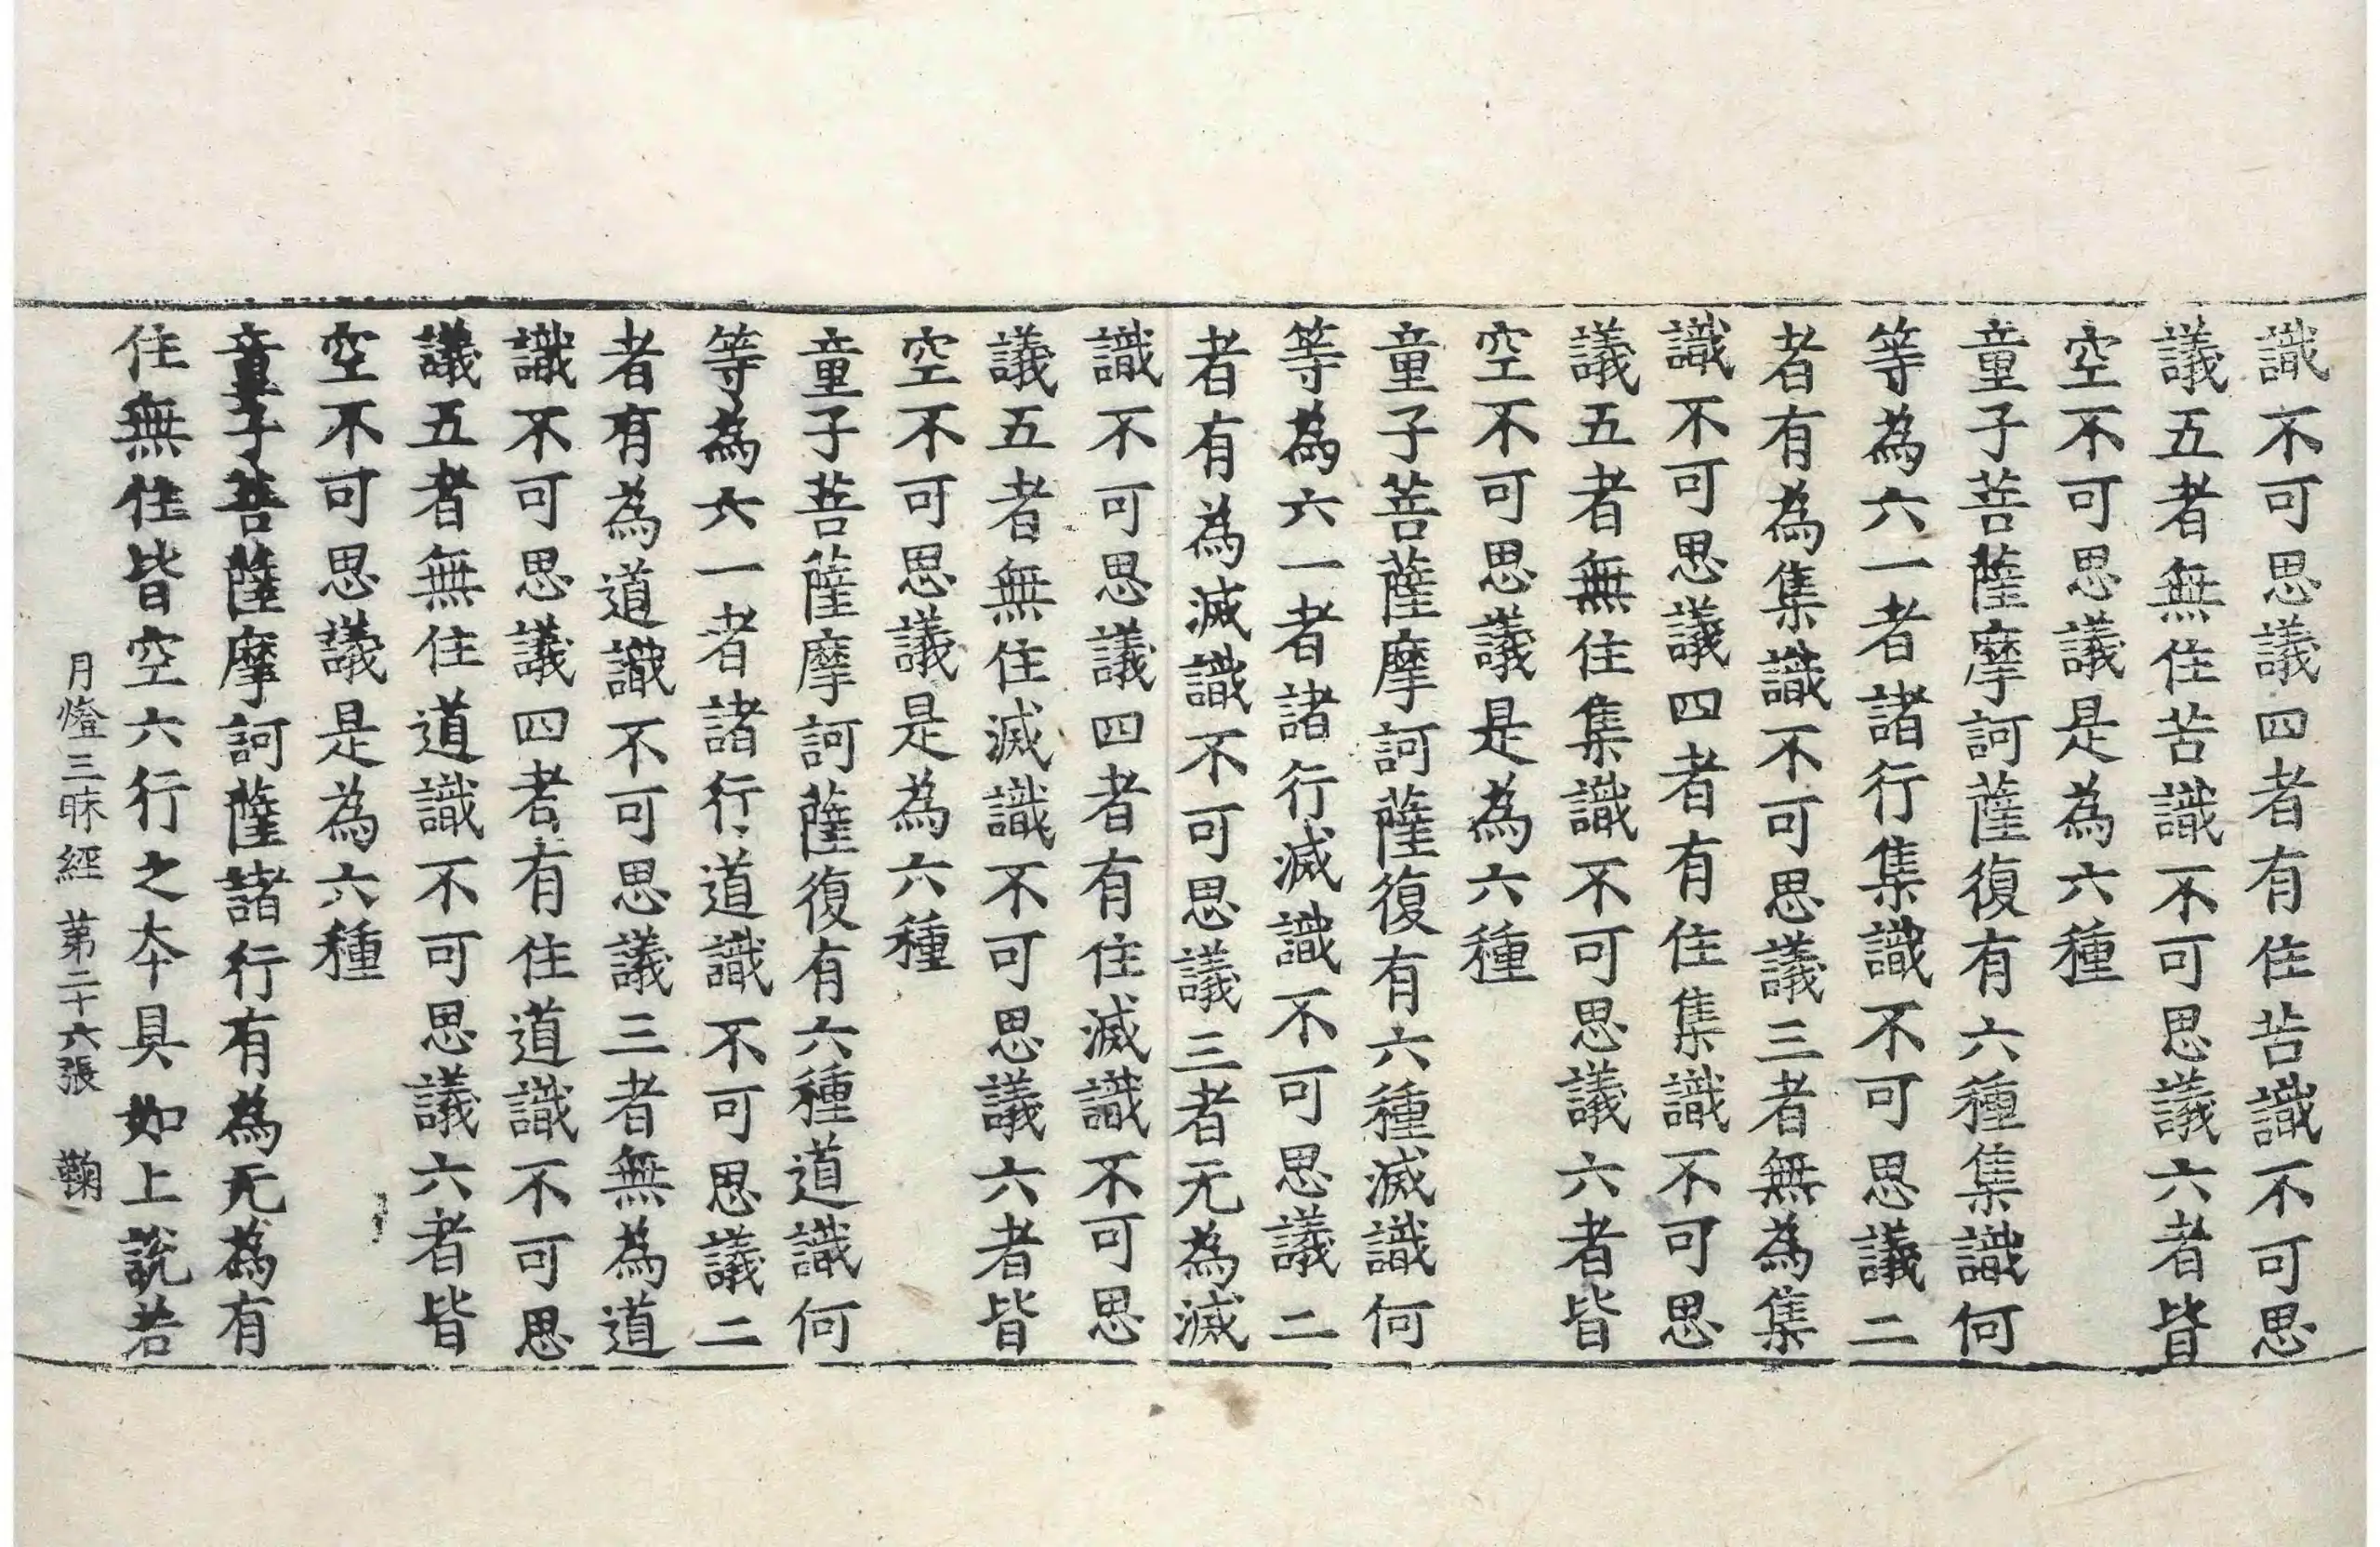 識不可思議四者有住苦識不可思
議五者無住苦識不可思議六者皆
空不可思議是為六種
童子菩薩摩訶薩復有六種集識何
等為六一者諸行集識不可思議二
者有為集識不可思議三者無為集
識不可思議四者有住集識不可思
議五者無住集識不可思議六者皆
空不可思議是為六種
童子菩薩摩訶薩復有六種滅識何
等為六一者諸行滅識不可思議二
者有為滅識不可思議三者无為滅
識不可思議四者有住滅識不可思
議五者無住滅識不可思議六者皆
空不可思議是為六種
童子菩薩摩訶薩復有六種道識何
等為六一者諸行道識不可思議二
者有為道識不可思議三者無為道
識不可思議四者有住道識不可思
議五者無住道識不可思議六者皆
空不可思議是為六種
童子菩薩摩訶薩諸行有為无為有
住無住皆空六行之夲具如上說若
月燈三昧經 苐二十六張 鞠